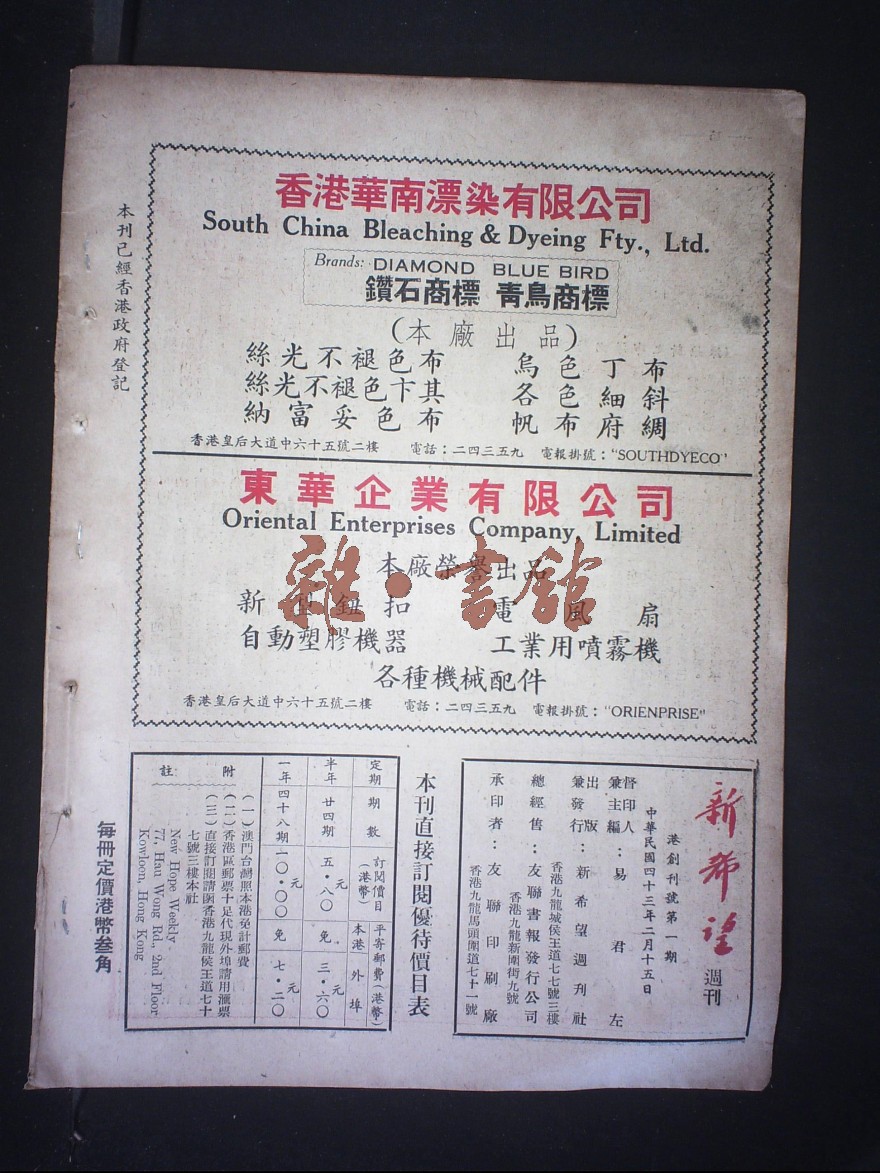 香港華南漂染有限公司
South China Bleaching & Dyeing Fty., Ltd.
Brands: DIAMOND BLUE BIRD
鑽石商標 青鳥商標
(本廠出品)
絲光不褪色布 烏色丁布
絲光不褪色卞其 各色細斜
納富妥色布 帆布府綢
香港皇后大道中六十五號二樓 電話：二四三五九 電報掛號："SOUTHDYECO"
東華企業有限公司
Oriental Enterprises Company, Limited
本廠榮譽出品
雜·書館
新型鈕扣 電風扇
自動塑膠機器 工業用噴霧機
各種機械配件
香港皇后大道中六十五號二樓 電話：二四三五九 電報掛號："ORIENPRISE"
本刊已經香港政府登記
新希望
週刊
港創刊號第一期
中華民國四十三年二月十五日
督印人
兼主編：易君左
出版
兼發行：新希望週刊社
香港九龍城侯王道七七號三樓
總經售：友聯書報發行公司
香港九龍新圍街九號
承印者：友聯印刷廠
香港九龍馬頭圍道七十一號
本刊直接訂閱優待價目表
定期 期數 訂閱價目(港幣) 平寄郵費(港幣) 本港 外埠
半年 廿四期 五·八〇元 免 三·六〇元
一年 四十八期 一〇·〇〇元 免 七·二〇元
附註
(一)澳門台灣照本港免計郵費
(二)香港區郵票十足代現外埠請用滙票
(三)直接訂閱請函香港九龍侯王道七十
七號三樓本社
New Hope Weekly
77, Hau Wong Rd., 2nd Floor
Kowloon, Hong Kong
每冊定價港幣叁角